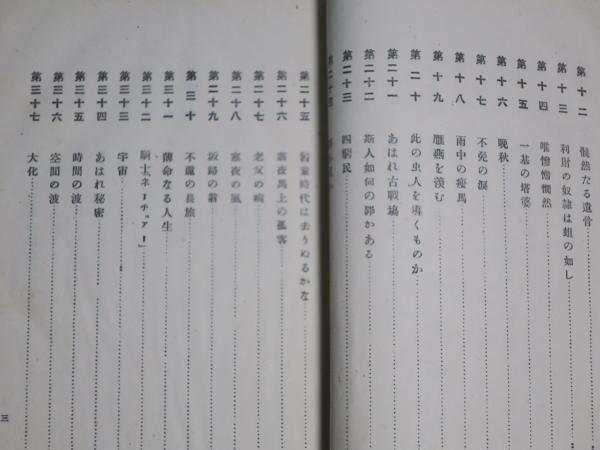 第十二 髐然たる遺骨
第十三 利財の奴隷は蛆の如し
第十四 唯憎憎惘然
第十五 一基の塔婆
第十六 晩秋
第十七 不免の涙
第十八 雨中の痩馬
第十九 雁燕を羨む
第二十 此の虫人を導くものか
第二十一 あはれ古戰塲
第二十二 斯人如何の罪かある
第二十三 四窮民
第二十四
第二十五 時代は去りぬるかな
第二十六 寒夜馬上の孤客
第二十七 老父の病
第二十八 寒夜の風
第二十九 故鄕の
第三十 不歸の長旅
第三十一 薄命なる人生
第三十二 騎士『ネーチュアー』
第三十三 宇宙
第三十四 あはれ秘密
第三十五 時間の波
第三十六 空間の波
第三十七 大化
三